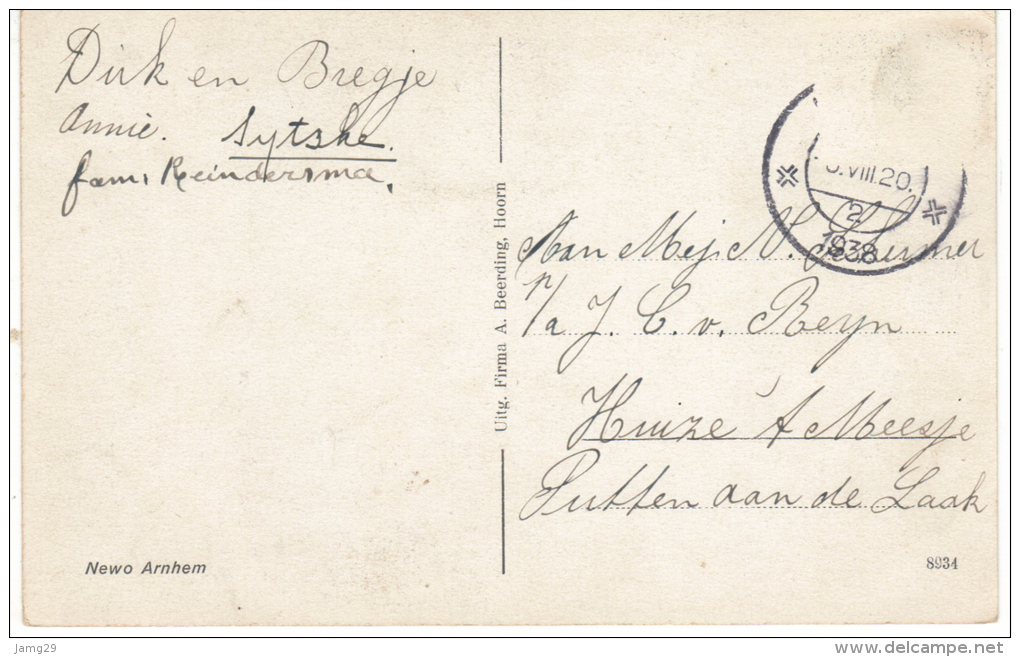 Dirk en Bregje
Annie. Sytske.
fam. Reindersma.
Uitg. Firma A. Beerding, Hoorn
VIII.20.
2
1938
Aan Mej. N. Schermer
p/a J. C. v. Reyn
Huize 't Meesje
Putten aan de Laak
Newo Arnhem
8934
jamg29
www.delcampe.net